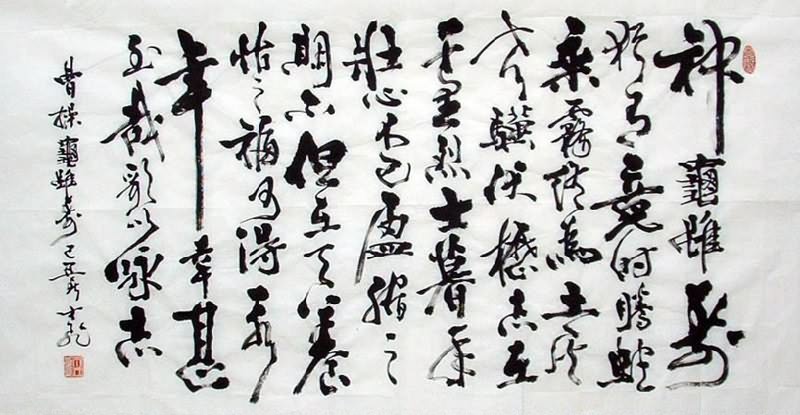 神龜雖壽
猶有竟时腾蛇
乘霧終為土灰
老驥伏櫪志在
千里烈士暮年
壯心不已盈縮之
期不但在天養
怡之福可得永
年幸甚
至哉歌以咏志
曹操龜雖壽